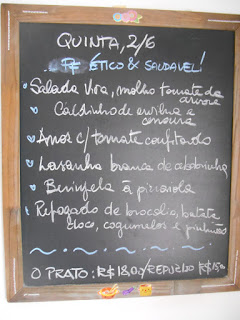 QUINTA, 2/6
ÉTICO & SAUDAVEL!
Salada viva, molho tomate da
árvore
Caldinho de ervilha e
cenoura
Arroz c/ tomate confitado
Lasanha branca de abobrinha
Berinjela à pizzaiola
Refogado de brócolis, batata
coco, cogumelos e pinhão
O PRATO: R$18,00/REPETIDO R$15,00